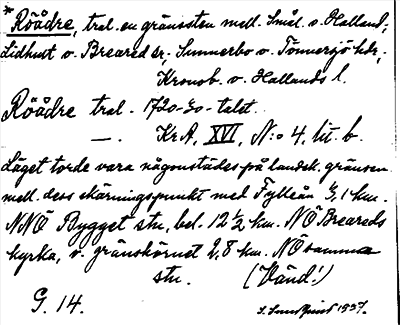 * Röådre, tral. en gränssten mell. Smål. o. Halland;
Lidhult o. Breared sr, Sunnerbo o. Tönnersjö hdr,
Kronob. o. Hallands l.
Röådre tral - 1720-30-talet.
—. KrA, XVI, N:o 4, lit. b.
Läget torde vara någonstädes på landsk. gränsen
mell. dess skärningspunkt med Fylleån 5,1 km.
NNÖ Bygget stn, bel. 12 ½ km. NÖ Breareds
kyrka, o. gränskörnet 2,8 km. NÖ samma
stn. (Vänd!)
G. 14. 1937.